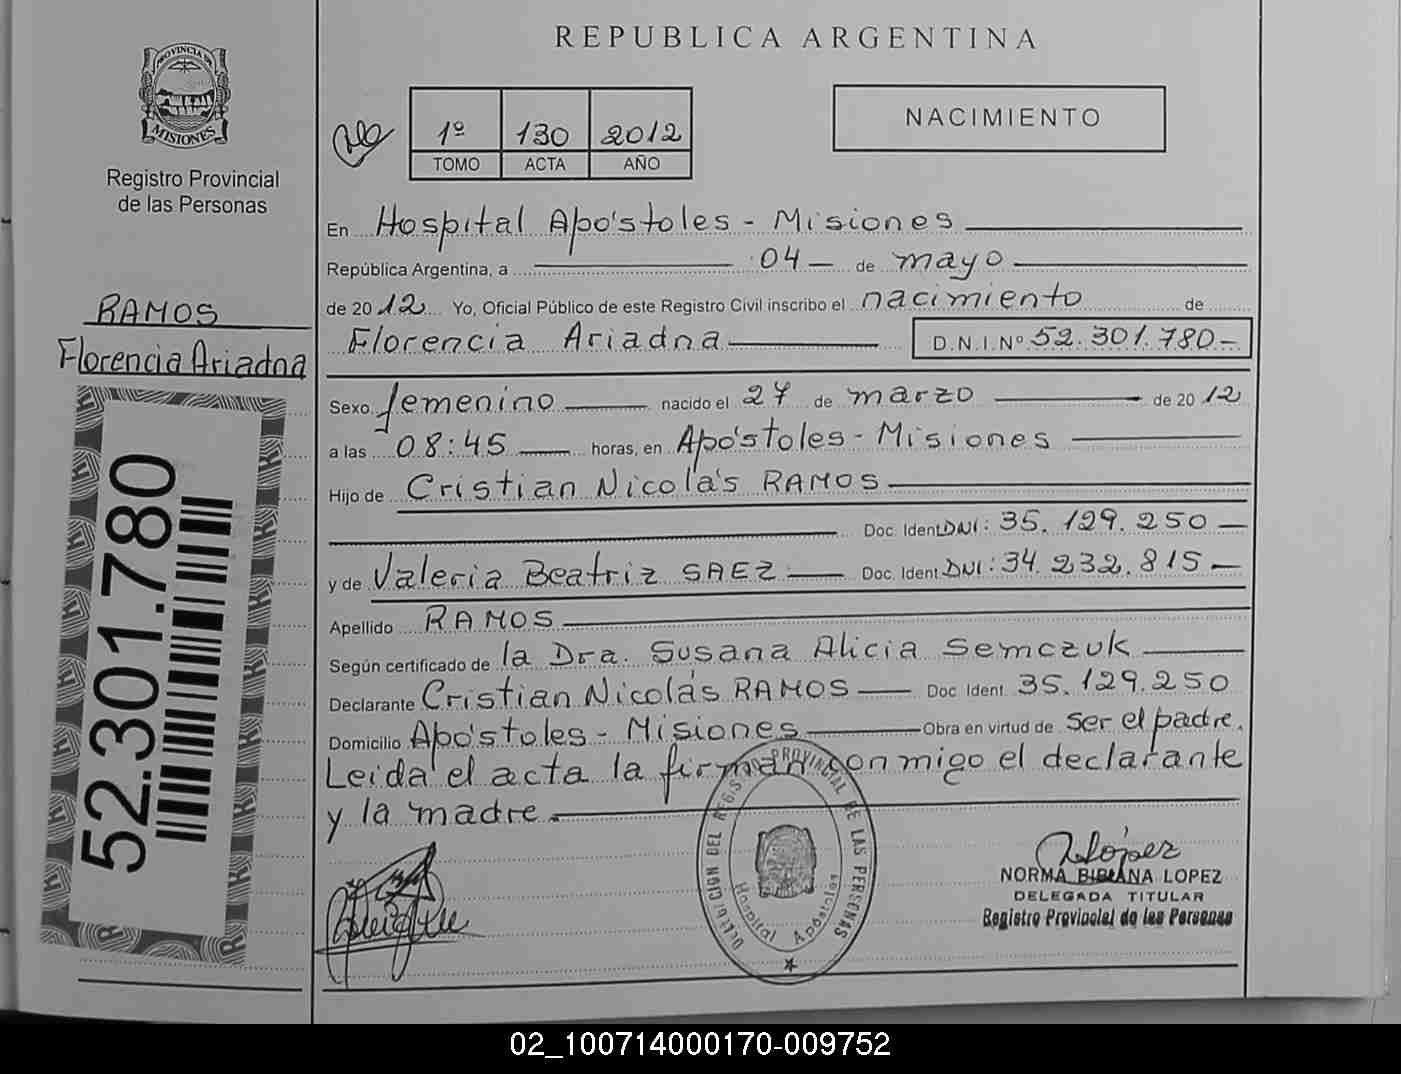 REPUBLICA ARGENTINA
PROVINCIA DE
MISIONES
Registro Provincial
de las Personas
1º 130 2012
TOMO ACTA AÑO
NACIMIENTO
En Hospital Apóstoles - Misiones
República Argentina, a 04 de mayo
de 2012 Yo, Oficial Público de este Registro Civil inscribo el nacimiento de
Florencia Ariadna D.N.I.Nº 52.301.780-
Sexo femenino nacido el 27 de marzo de 2012
a las 08:45 horas, en Apóstoles - Misiones
Hijo de Cristian Nicolás RAMOS
Doc. Ident. DNI: 35.129.250
y de Valeria Beatriz SAEZ Doc. Ident. DNI: 34.232.815
Apellido RAMOS
Según certificado de la Dra. Susana Alicia Semczuk
Declarante Cristian Nicolás RAMOS Doc Ident. 35.129.250
Domicilio Apóstoles - Misiones Obra en virtud de ser el padre.
Leída el acta la firman conmigo el declarante
y la madre.
RAMOS
Florencia Ariadna
52.301.780
DELEGACION DEL REGISTRO PROVINCIAL DE LAS PERSONAS
Hospital Apóstoles
López
NORMA BIBIANA LOPEZ
DELEGADA TITULAR
Registro Provincial de las Personas
02_100714000170-009752